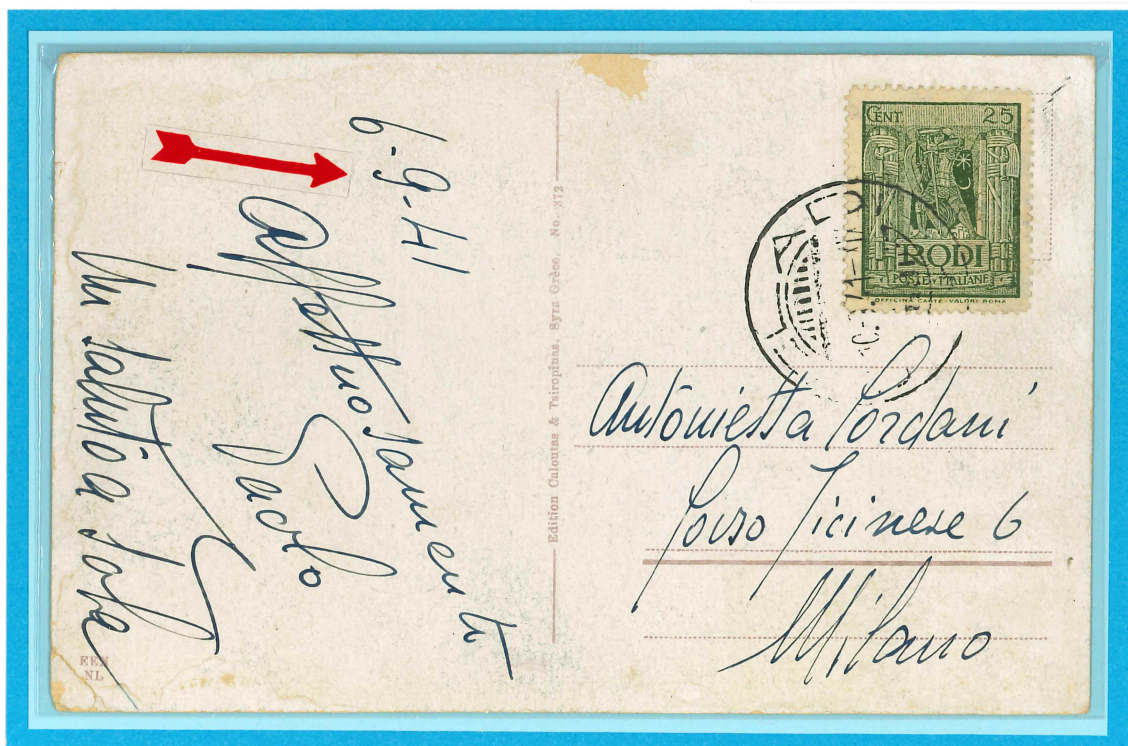 6-9-41
Affettuosamente
Paolo
Un saluto a
Edition Caloutas & Tsiropinas, Syra Grèce. No. 372
CENT 25
RODI
POSTE ITALIANE
OFFICINA CARTE-VALORI ROMA
Antonietta Cordani
Corso Ticinese 6
Milano
NL